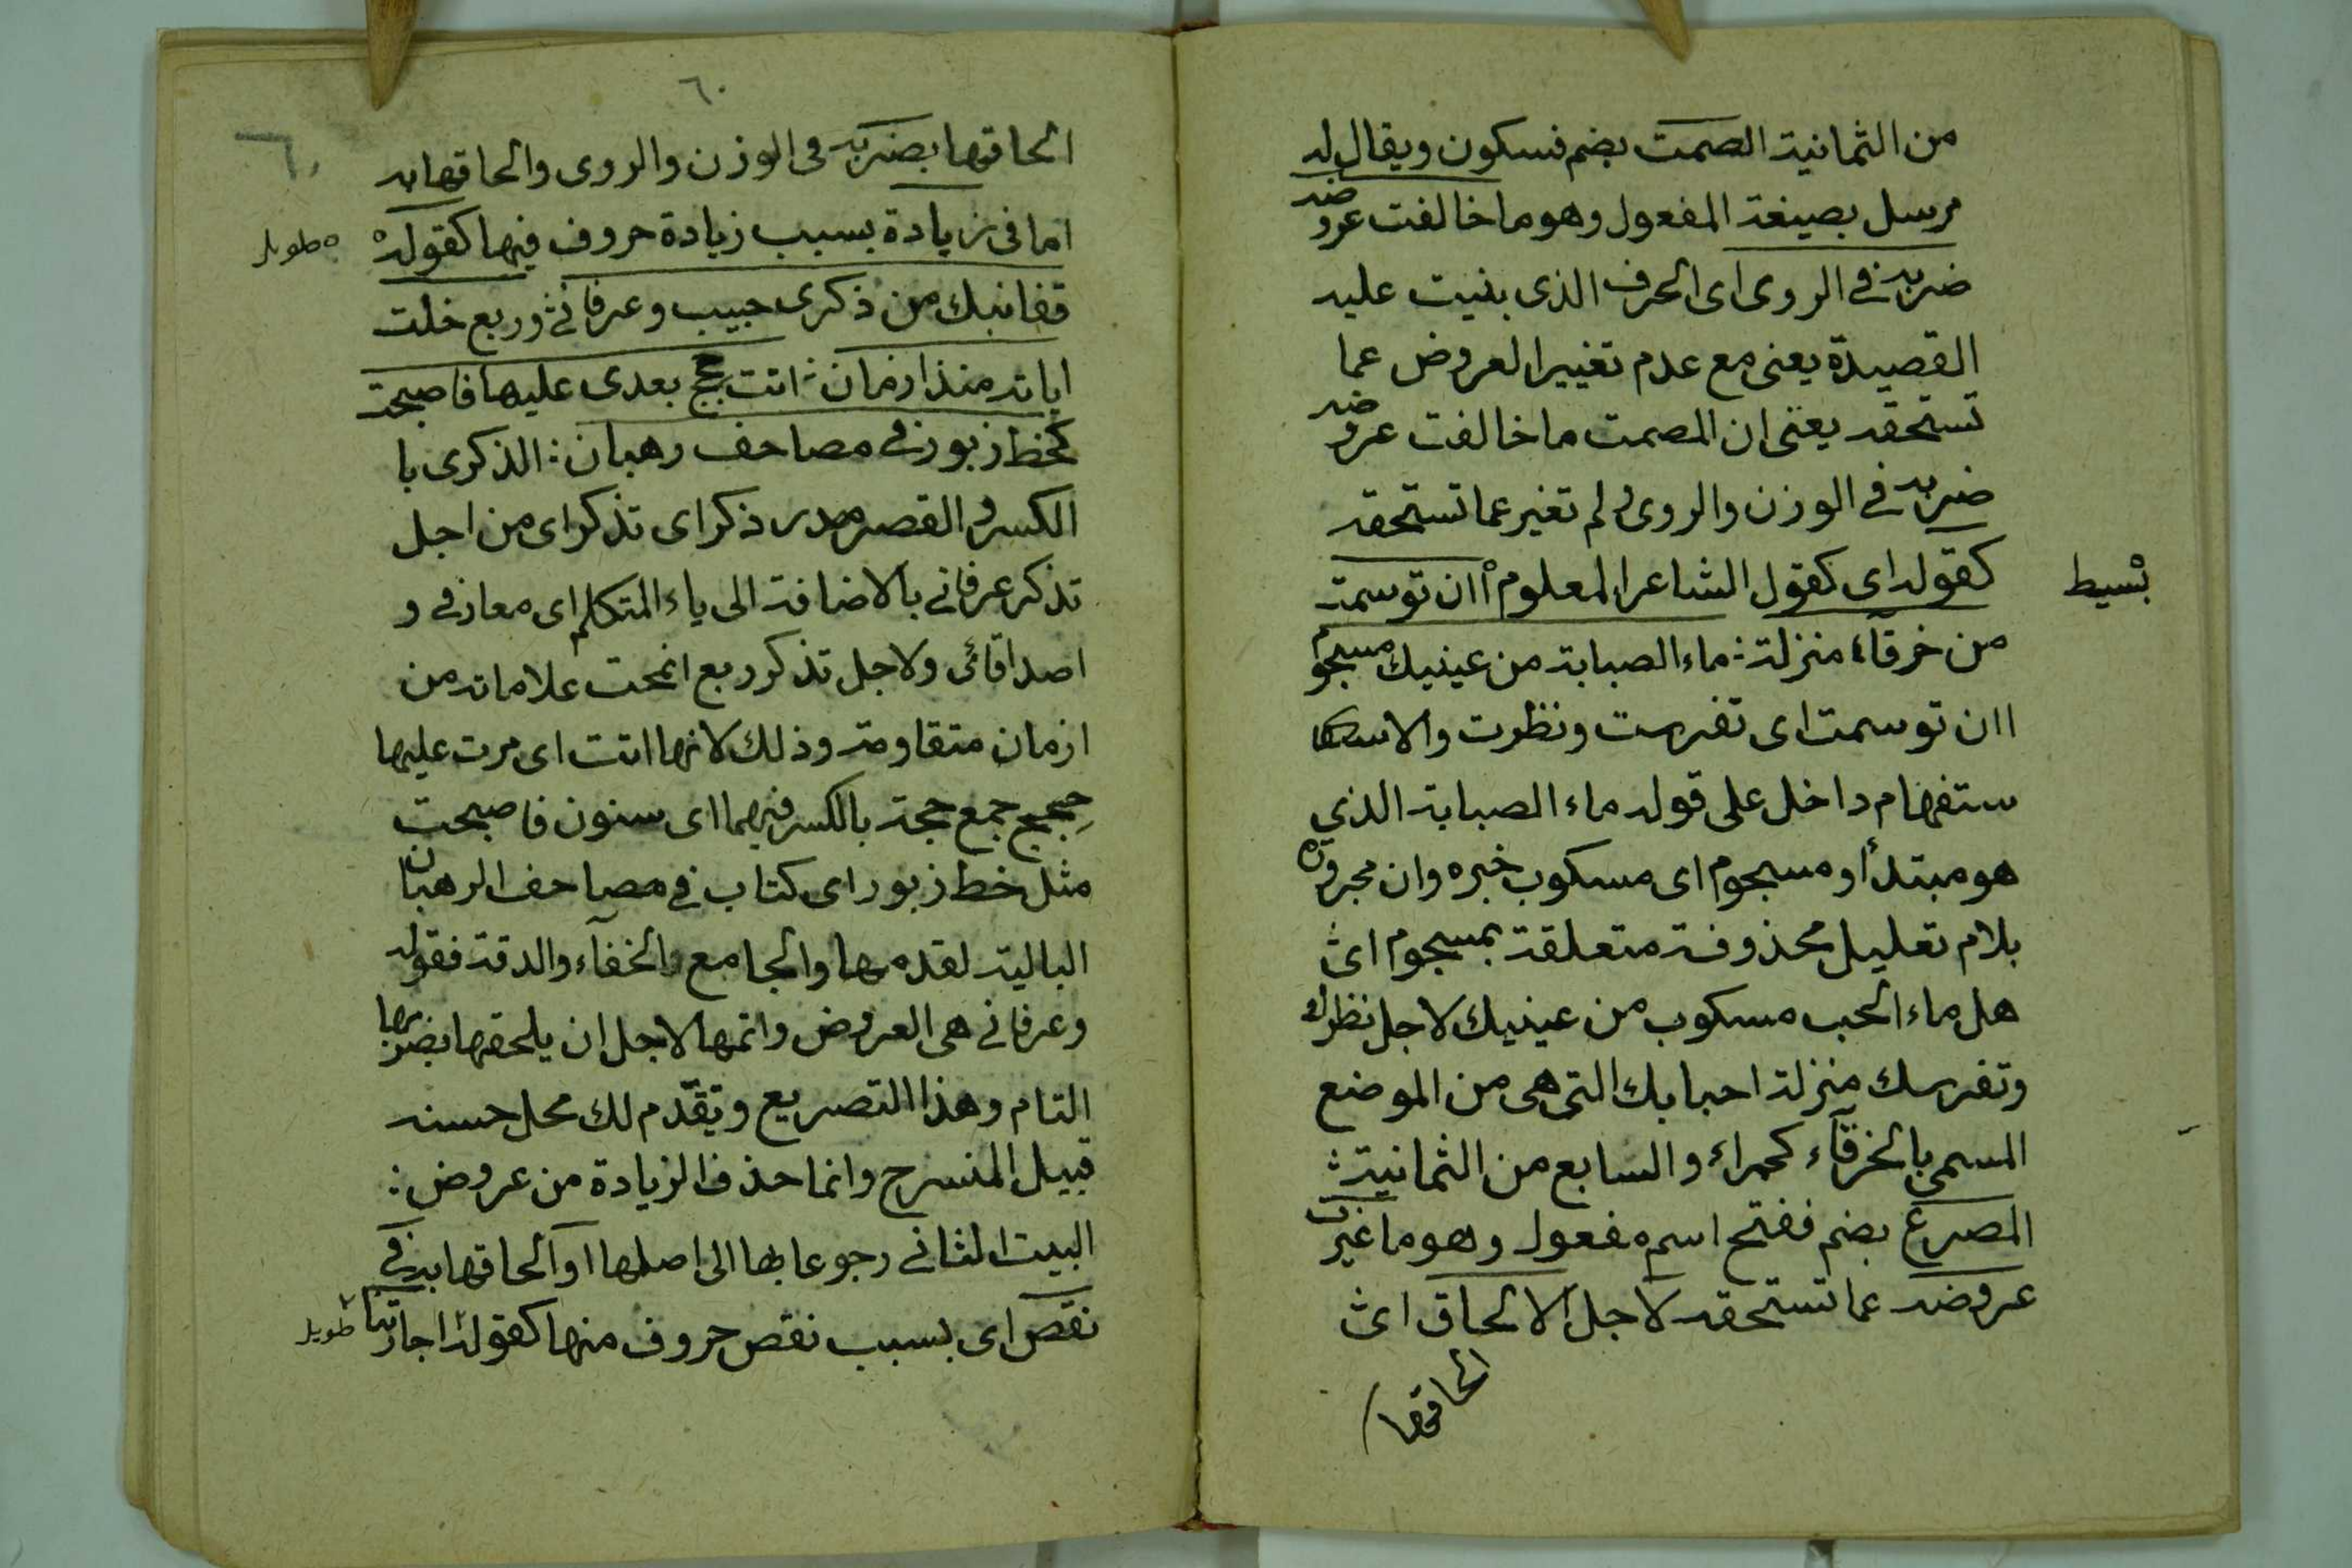 من الثمانية المصمت بضم فسكون ويقال له
مرسل بصيغة المفعول وهو ما خالفت عروضه
ضربه في الروى اى الحرف الذى بنيت عليه
القصيدة يعنى مع عدم تغيير العروض عما
تستحقه يعنى ان المصمت ما خالفت عروضه
ضربه في الوزن والروى ولم تغير عما تستحقه
كقوله اى كقول الشاعر المعلوم أان توسمت
بسيط
من خرقآء منزلة : ماء الصبابة من عينيك مسجوم
اان توسمت اى تفرست ونظرت والاسكا
ستفهام داخل على قوله ماء الصبابة الذي
هو مبتدأ ومسجوم اى مسكوب خبره وان مجرورة
بلام تعليل محذوفة متعلقة بمسجوم اى
هل ماء الحب مسكوب من عينيك لاجل نظرك
وتفرسك منزلة احبابك التى هى من الموضع
المسمى بالخرقآء كحمراء والسابع من الثمانية :
المصرع بضم ففتح اسم مفعول وهو ما غيرت
عروضه عما تستحقه لاجل الالحاق اى
الحاقها
٦٠
٦٠
الحاقها بضربه فى الوزن والروى والحاقها به
اما فى زيادة بسبب زيادة حروف فيها كقوله
طويل
قفا نبك من ذكرى حبيب وعرفاني وربع خلت
اياته منذ ازمان : اتت حجج بعدى عليها فاصبحت
كخط زبور في مصاحف رهبان : الذكرى با
الكسر والقصر مصدر ذكر اى تذكر اى من اجل
تذكر عرفاني بالاضافة الى ياء المتكلم اى معارفي و
اصداقائى ولاجل تذكر ربع انمحت علاماته من
ازمان متقاومة وذلك لانها اتت اى مرت عليها
حجج جمع حجة بالكسر فيهما اى سنون فاصبحت
مثل خط زبور اى كتاب في مصاحف الرهبان
البالية لقدمها والجامع الخفآء والدقة فقوله
وعرفاني هى العروض واتمها لاجل ان يلحقها بضربها
التام وهذا التصريع وتقدم لك محل حسنه
قبيل المنسرح وانما حذف الزيادة من عروض :
البيت الثاني رجوعا بها الى اصلها او الحاقها به في
نقص اى بسبب نقص حروف منها كقوله اجارتنا
طويل